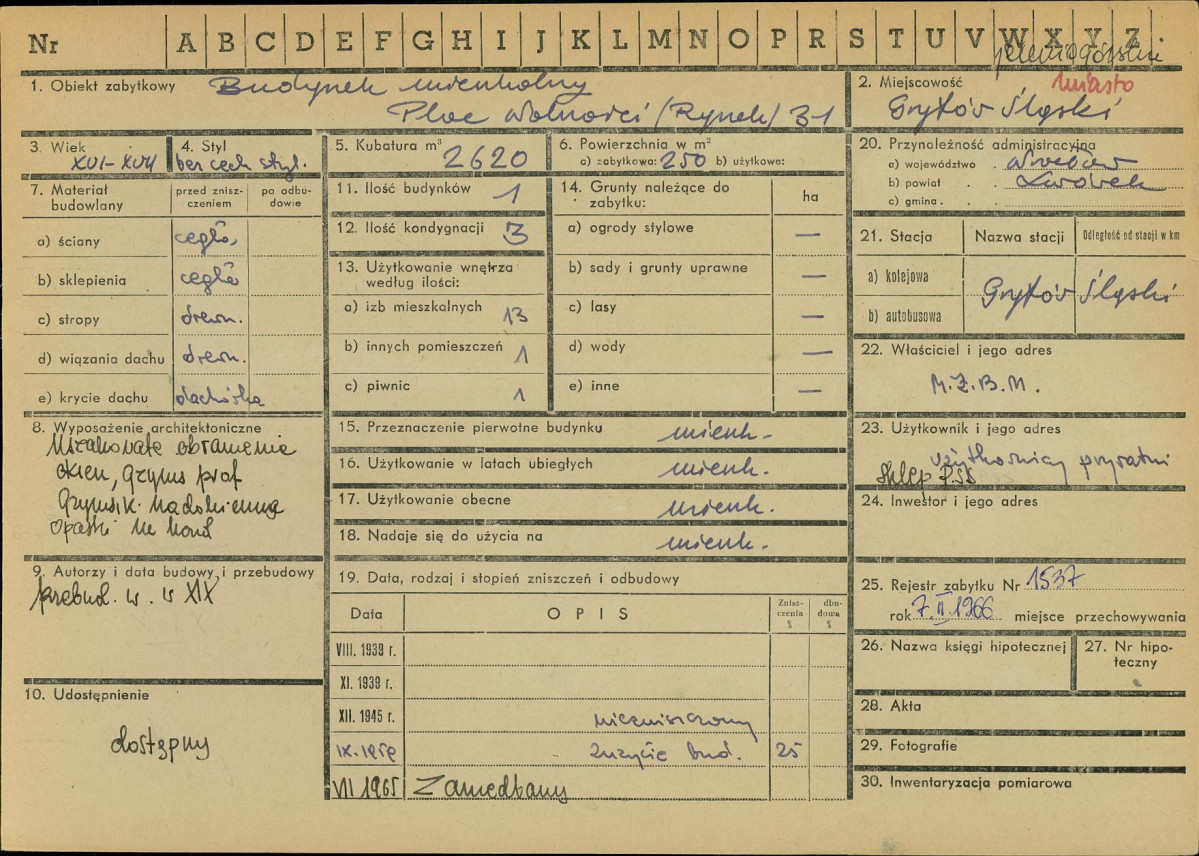 Nr A B C D E F G H I J K L M N O P R S T U V W X Y Z
jeleniogórskie
1. Obiekt zabytkowy Budynek mieszkalny
Plac Wolności (Rynek) 31
2. Miejscowość miasto
Gryfów Śląski
3. Wiek
XVI-XVII
4. Styl
bez cech styl.
5. Kubatura m³ 2620
6. Powierzchnia w m²
a) zabytkowa: 250 b) użytkowa:
7. Materiał budowlany
przed zniszczeniem
po odbudowie
a) ściany cegła
b) sklepienia cegła
c) stropy drewn.
d) wiązania dachu drewn.
e) krycie dachu dachówka
8. Wyposażenie architektoniczne
obramienia
okien, gzyms prof
opaski
9. Autorzy i data budowy i przebudowy
przebud. w. w XIX
10. Udostępnienie
dostępny
11. Ilość budynków 1
12. Ilość kondygnacji 3
13. Użytkowanie wnętrza
według ilości:
a) izb mieszkalnych 13
b) innych pomieszczeń 1
c) piwnic 1
14. Grunty należące do
zabytku:
ha
a) ogrody stylowe —
b) sady i grunty uprawne —
c) lasy —
d) wody —
e) inne —
15. Przeznaczenie pierwotne budynku mieszk.
16. Użytkowanie w latach ubiegłych mieszk.
17. Użytkowanie obecne mieszk.
18. Nadaje się do użycia na mieszk.
19. Data, rodzaj i stopień zniszczeń i odbudowy
Data
OPIS
Zniszczenia %
dbudowa %
VIII. 1939 r.
XI. 1939 r.
XII. 1945 r. niezniszczony
IX.1959 zużycie bud. 25
VII 1965 Zaniedbany
20. Przynależność administracyjna
a) województwo Wrocław
b) powiat Lwówek
c) gmina
21. Stacja
Nazwa stacji
Odległość od stacji w km
a) kolejowa
Gryfów Śląski
b) autobusowa
22. Właściciel i jego adres
M.Z.B.M.
23. Użytkownik i jego adres
użytkownicy prywatni
Sklep PSS
24. Inwestor i jego adres
25. Rejestr zabytku Nr 1537
rok 7.II.1966 miejsce przechowywania
26. Nazwa księgi hipotecznej
27. Nr hipoteczny
28. Akta
29. Fotografie
30. Inwentaryzacja pomiarowa